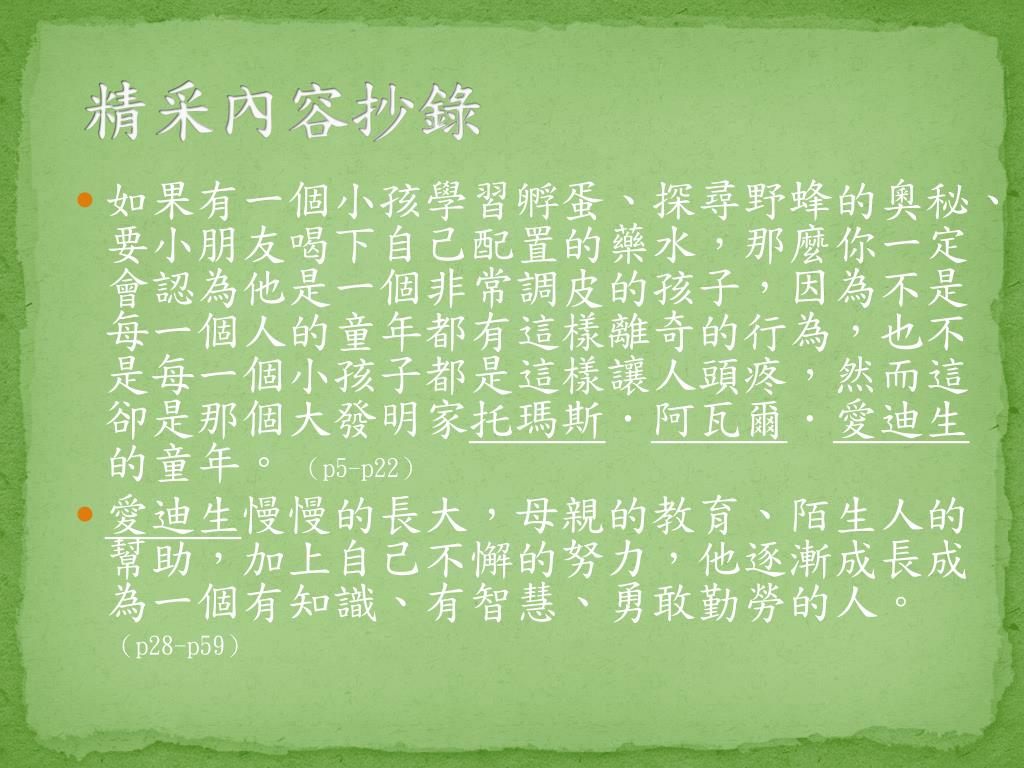 精采內容抄錄
如果有一個小孩學習孵蛋、探尋野蜂的奧秘、
要小朋友喝下自己配置的藥水，那麼你一定
會認為他是一個非常調皮的孩子，因為不是
每一個人的童年都有這樣離奇的行為，也不
是每一個小孩子都是這樣讓人頭疼，然而這
卻是那個大發明家托瑪斯．阿瓦爾．愛迪生
的童年。（p5-p22）
愛迪生慢慢的長大，母親的教育、陌生人的
幫助，加上自己不懈的努力，他逐漸成長成
為一個有知識、有智慧、勇敢勤勞的人。
（p28-p59）